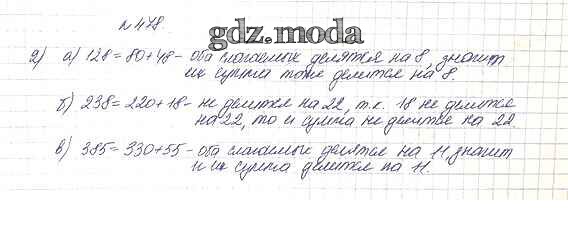 № 478.
gdz.moda
2) а) 128 = 80 + 48 - оба слагаемых делятся на 8, значит
и их сумма тоже делится на 8.
б) 238 = 220 + 18 - не делится на 22, т.к. 18 не делится
на 22, то и сумма не делится на 22.
в) 385 = 330 + 55 - оба слагаемых делятся на 11, значит
и их сумма делится на 11.